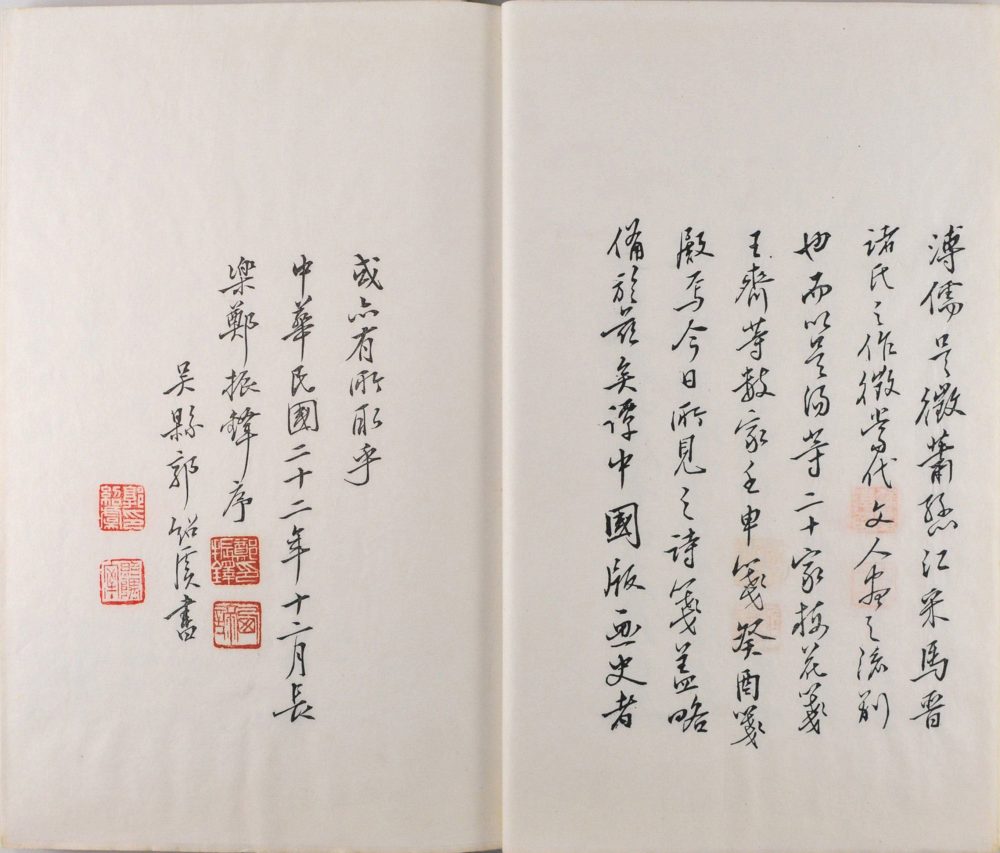 溥儒吴徵萧愻江采馬晋
諸氏之作徵當代文人畫之流别
也而以吴湯等二十家梅花箋
王齊等數家壬申箋癸酉箋
殿焉今日所見之詩箋蓋略
備於茲矣譚中國版画史者
或亦有所取乎
中華民國二十二年十二月長
樂鄭振鐸序
鄭振鐸印
吴縣郭紹虞書
郭印紹虞